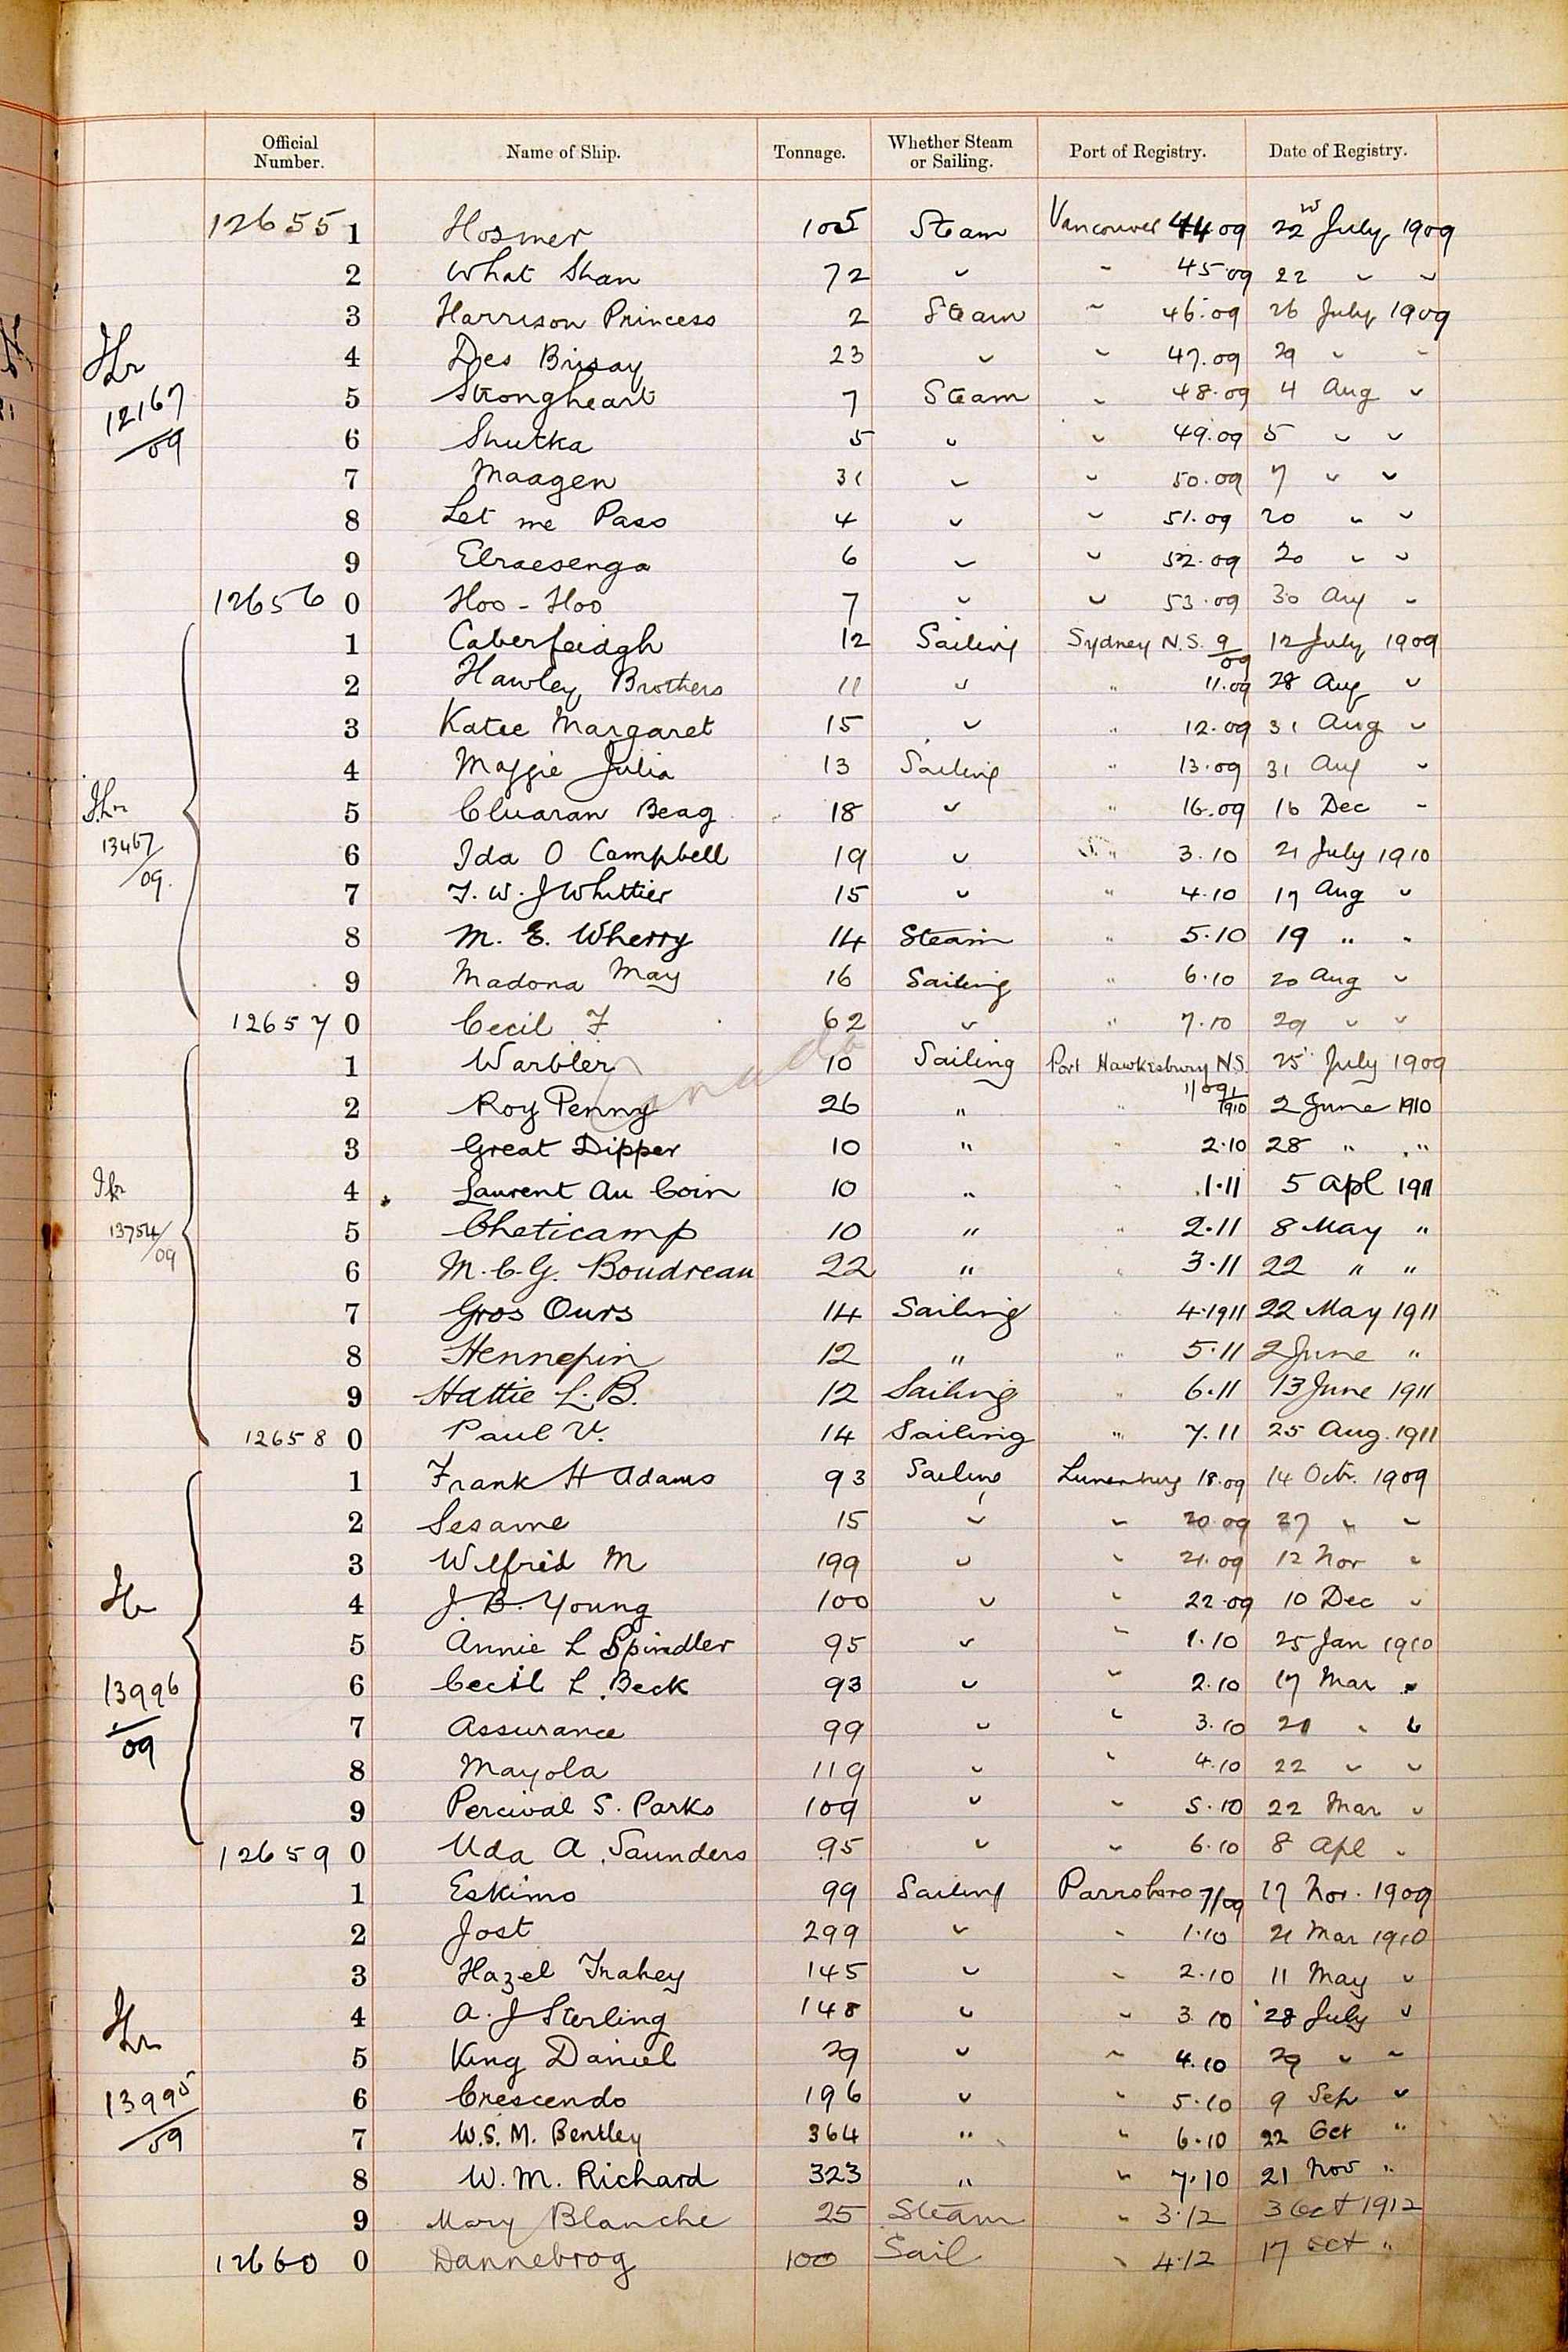 Official Number. Name of Ship. Tonnage. Whether Steam or Sailing. Port of Registry. Date of Registry.
12655 1 Hosmer 105 Steam Vancouver 44 09 22 July 1909
2 What Shan 72 " " 45.09 22 " "
3 Harrison Princess 2 Steam " 46.09 26 July 1909
4 Des Brisay 23 " " 47.09 29 " "
12167/09 5 Strongheart 7 Steam " 48.09 4 Aug "
6 Shutka 5 " " 49.09 5 " "
7 Maagen 31 " " 50.09 7 " "
8 Let me Pass 4 " " 51.09 20 " "
9 Elraesenga 6 " " 52.09 20 " "
12656 0 Hoo - Hoo 7 " " 53.09 30 Aug "
1 Caberfeidgh 12 Sailing Sydney N.S. 9/09 12 July 1909
2 Hawley Brothers 11 " " 11.09 28 Aug "
3 Katie Margaret 15 " " 12.09 31 Aug "
4 Maggie Julia 13 Sailing " 13.09 31 Aug "
5 Cluaran Beag 18 " " 16.09 16 Dec "
13467/09. 6 Ida O Campbell 19 " " 3.10 21 July 1910
7 T. W. J Whittier 15 " " 4.10 17 Aug "
8 M. E. Wherry 14 Steam " 5.10 19 " "
9 Madona May 16 Sailing " 6.10 20 Aug "
12657 0 Cecil F 62 " " 7.10 29 " "
1 Warbler 10 Sailing Port Hawkesbury N.S. 11 09 25 July 1909
Canada
2 Roy Penny 26 " " 1/1910 2 June 1910
3 Great Dipper 10 " " 2.10 28 " "
4 Laurent Au Coin 10 " " 1.11 5 Apl 1911
13754/09 5 Cheticamp 10 " " 2.11 8 May "
6 M.C.G. Boudreau 22 " " 3.11 22 " "
7 Gros Ours 14 Sailing " 4.1911 22 May 1911
8 Hennepin 12 " " 5.11 2 June "
9 Hattie L. B. 12 Sailing " 6.11 13 June 1911
12658 0 Paul V. 14 Sailing " 7.11 25 Aug. 1911
1 Frank H Adams 93 Sailing Lunenburg 18.09 14 Octr. 1909
2 Sesame 15 " " 20.09 27 " "
3 Wilfrid M 199 " " 21.09 12 Nov "
4 J. B. Young 100 " " 22.09 10 Dec "
5 Annie L Spindler 95 " " 1.10 25 Jan 1910
13996/09 6 Cecil L. Beck 93 " " 2.10 17 Mar "
7 Assurance 99 " " 3.10 21 " "
8 Mayola 119 " " 4.10 22 " "
9 Percival S. Parks 109 " " 5.10 22 Mar "
12659 0 Uda A. Saunders 95 " " 6.10 8 Apl "
1 Eskimo 99 Sailing Parrsboro 7/09 17 Nov. 1909
2 Jost 299 " " 1.10 21 Mar 1910
3 Hazel Trahey 145 " " 2.10 11 May "
4 A. J Sterling 148 " " 3.10 28 July "
5 King Daniel 29 " " 4.10 29 " "
13995/09 6 Crescendo 196 " " 5.10 9 Sep "
7 W.S. M. Bentley 364 " " 6.10 22 Oct "
8 W. M. Richard 323 " " 7.10 21 Nov "
9 Mary Blanche 25 Steam " 3.12 3 Oct 1912
12660 0 Dannebrog 100 Sail " 4.12 17 Oct "